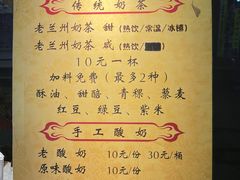 传统奶茶
老兰州奶茶 甜(热饮/常温/冰镇)
老兰州奶茶 咸(热饮/
10元一杯
加料免费(最多2种)
酥油、甜醅、青稞、藜麦
红豆、绿豆、紫米
手工酸奶
老酸奶 10元/份 30元/桶
原味酸奶 10元/份